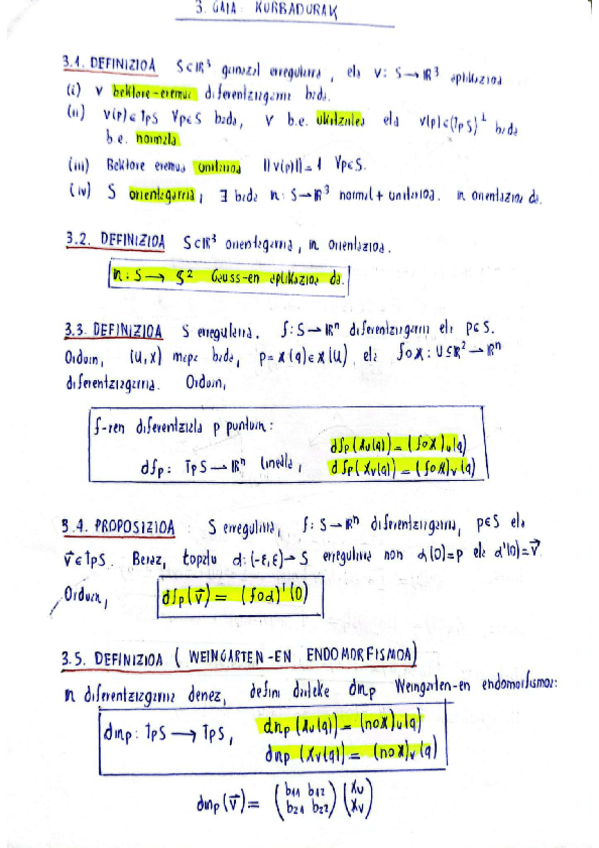 3. GAIA: KURBADURAK
3.1. DEFINIZIOA S⊂ℝ³ gainazal erregularra, eta v: S→ℝ³ aplikazioa
(i) v bektore-eremu diferentziagarria bada.
(ii) v(p)∈TpS ∀p∈S bada, v b.e. ukitzailea eta v(p)∈(TpS)^⊥ bada
b.e. normala
(iii) Bektore eremua unitarioa ||v(p)||=1 ∀p∈S.
(iv) S orientagarria, ∃ bada n: S→ℝ³ normal + unitarioa. n orientazioa da.
3.2. DEFINIZIOA S⊂ℝ³ orientagarria, n orientazioa.
n: S → S² Gauss-en aplikazioa da.
3.3. DEFINIZIOA S erregularra. f: S→ℝⁿ diferentziagarria eta p∈S.
Orduan, (U,x) mapa bada, p=x(q)∈x(U), eta fox: U⊆ℝ²→ℝⁿ
diferentziagarria. Orduan,
f-ren diferentziala p puntuan:
dfp: TpS→ℝⁿ lineala,
dfp(xu(q)) = (fox)u(q)
dfp(xv(q)) = (fox)v(q)
3.4. PROPOSIZIOA: S erregularra, f: S→ℝⁿ diferentziagarria, p∈S eta
v⃗∈TpS. Beraz, topatu α: (-ε,ε)→S erregularra non α(0)=p eta α'(0)=v⃗
Orduan, dfp(v⃗) = (foα)'(0)
3.5. DEFINIZIOA (WEINGARTEN-EN ENDOMORFISMOA)
n diferentziagarria denez, defini daiteke dnp Weingarten-en endomorfismoa:
dnp: TpS → TpS, dnp(xu(q)) = (nox)u(q)
dnp(xv(q)) = (nox)v(q)
dnp(v⃗) = (b11 b12 b21 b22)(xu xv)